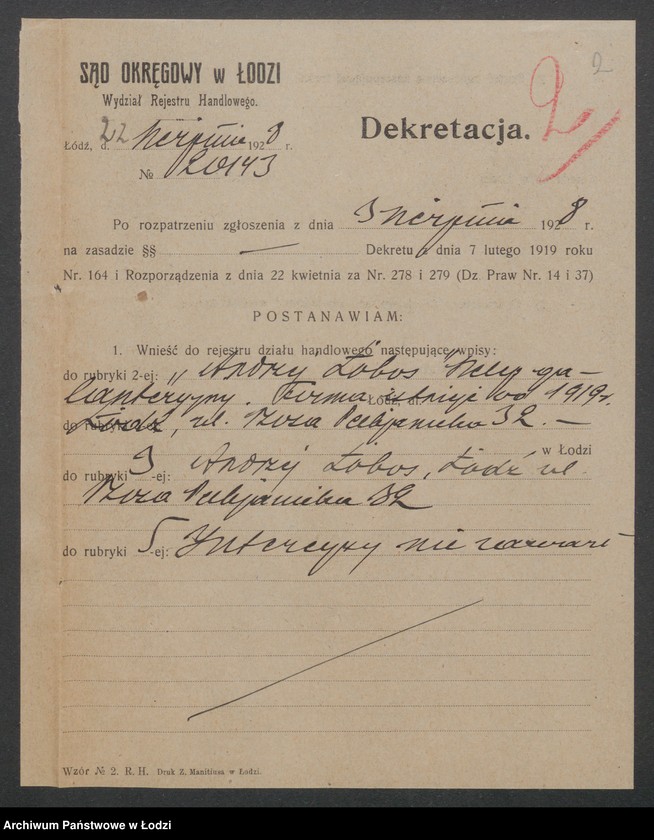 2
2
SĄD OKRĘGOWY w ŁODZI
Wydział Rejestru Handlowego.
Dekretacja.
Łódź, d. 22 sierpnia 1928 r.
№ 20143
Po rozpatrzeniu zgłoszenia z dnia 3 sierpnia 1928 r.
na zasadzie §§ — Dekretu z dnia 7 lutego 1919 roku
Nr. 164 i Rozporządzenia z dnia 22 kwietnia za Nr. 278 i 279 (Dz. Praw Nr. 14 i 37)
POSTANAWIAM:
1. Wnieść do rejestru działu handlowego następujące wpisy:
do rubryki 2-ej: „Andrzej Łobos sklep ga-
lanteryjny. Firma istnieje od 1919 r.
Łódź, ul. Szosa Pabjanicka 32. —
w Łodzi
do rubryki 3-ej: Andrzej Łobos, Łódź ul.
Szosa Pabjanicka 32
do rubryki 5-ej: Intercyzy nie zawarł
Wzór № 2. R. H. Druk Z. Manitiusa w Łodzi.
Archiwum Państwowe w Łodzi